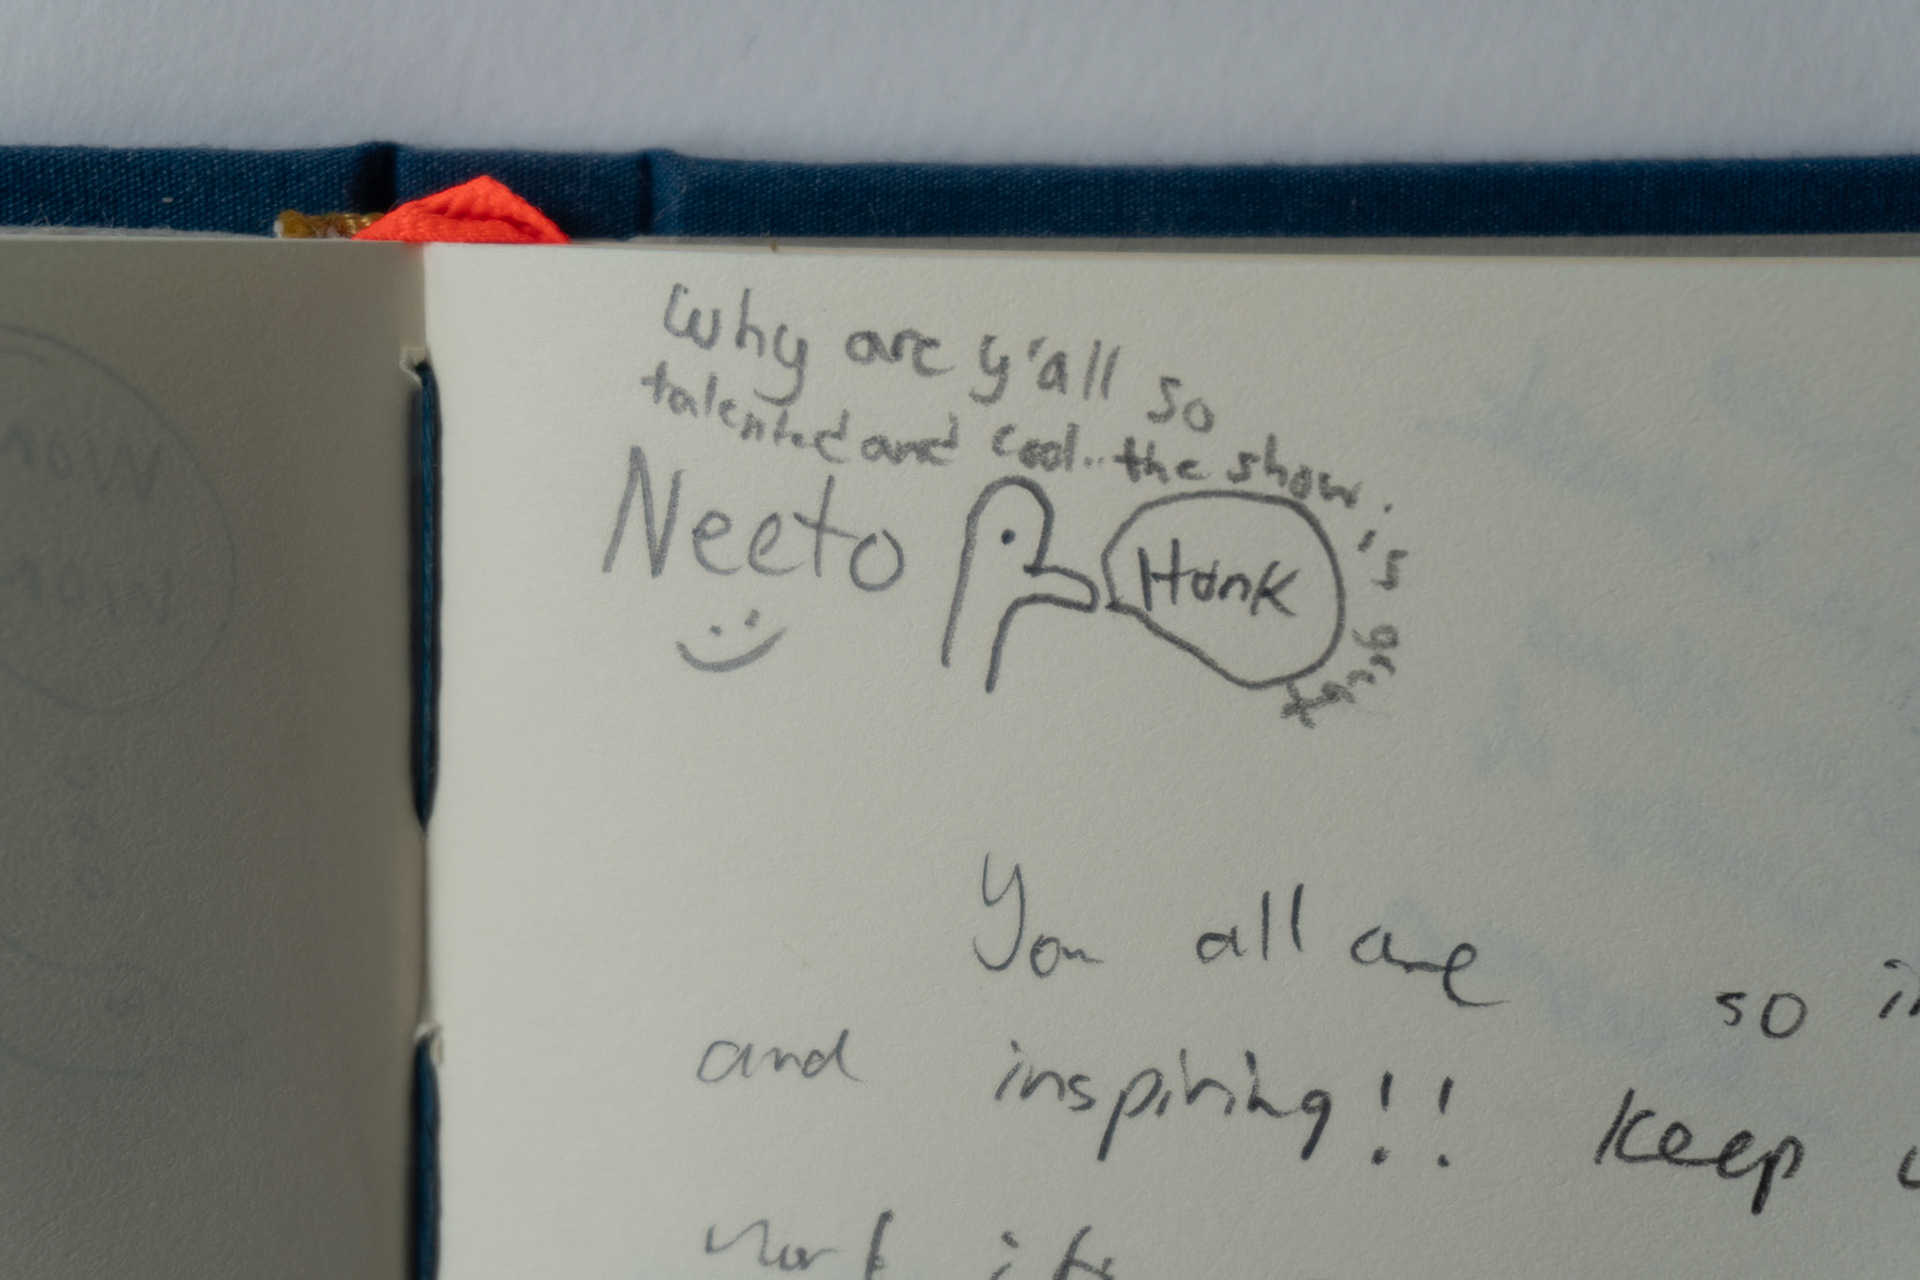 Why are y'all so
talented and cool.. the show is great
Neeto
Honk
:)
You all are so
and inspiring!! Keep
work